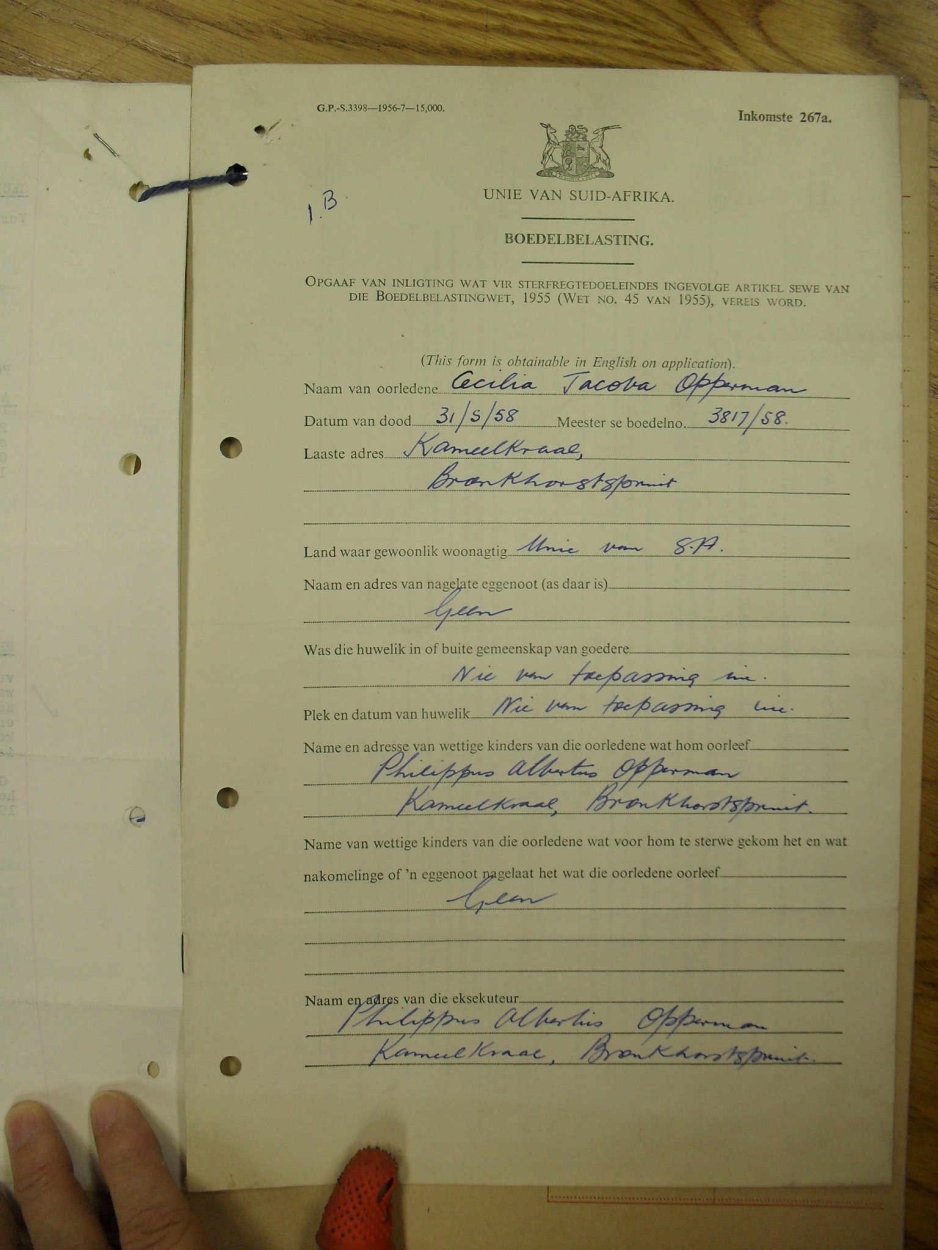 G.P.-S.3398—1956-7—15,000.
Inkomste 267a.
1.B
UNIE VAN SUID-AFRIKA.
BOEDELBELASTING.
OPGAAF VAN INLIGTING WAT VIR STERFREGTEDOELEINDES INGEVOLGE ARTIKEL SEWE VAN
DIE BOEDELBELASTINGWET, 1955 (WET NO. 45 VAN 1955), VEREIS WORD.
(This form is obtainable in English on application).
Naam van oorledene Cecilia Jacoba Opperman
Datum van dood 31/5/58 Meester se boedelno. 3817/58.
Laaste adres Kameelkraal,
Bronkhorstspruit
Land waar gewoonlik woonagtig Unie van S.A.
Naam en adres van nagelate eggenoot (as daar is)
Geen
Was die huwelik in of buite gemeenskap van goedere
Nie van toepassing nie.
Plek en datum van huwelik Nie van toepassing nie.
Name en adresse van wettige kinders van die oorledene wat hom oorleef
Philippus Albertus Opperman
Kameelkraal, Bronkhorstspruit.
Name van wettige kinders van die oorledene wat voor hom te sterwe gekom het en wat
nakomelinge of 'n eggenoot nagelaat het wat die oorledene oorleef
Geen
Naam en adres van die eksekuteur
Philippus Albertus Opperman
Kameelkraal, Bronkhorstspruit.